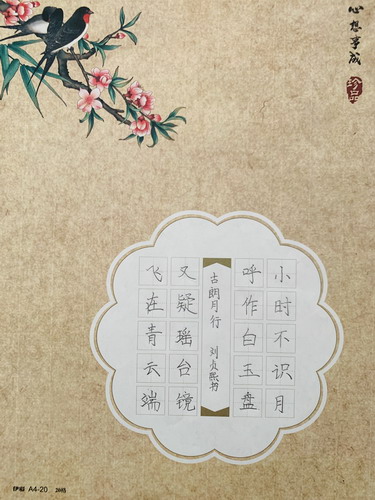 心想事成
珍品
小时不识月
呼作白玉盘
古朗月行 刘贞熙书
又疑瑶台镜
飞在青云端
A4-20